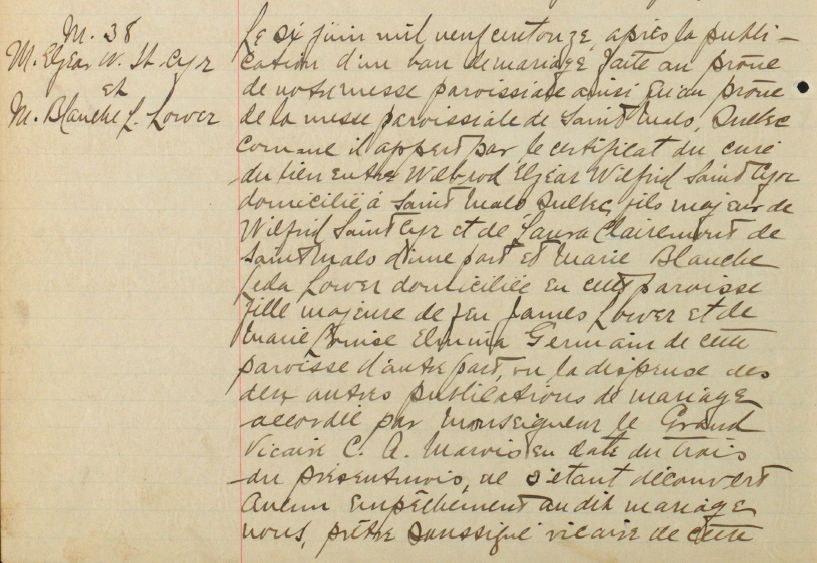 M. 38
M. Elzear W. St. Cyr
et
M. Blanche L. Lower
Le six juin mil neuf cent onze, après la publi-
cation d'un ban de mariage faite au prône
de notre messe paroissiale ainsi qu'au prône
de la messe paroissiale de Saint Malo, Québec
comme il appert par le certificat du curé
du lieu entre Wilbrod Elzear Wilfrid Saint Cyr
domicilié à Saint Malo Québec, fils majeur de
Wilfrid Saint Cyr et de Laura Clairemont de
Saint Malo d'une part et Marie Blanche
Leda Lower domiciliée en cette paroisse
fille majeure de feu James Lower et de
Marie Louise Elmina Germain de cette
paroisse d'autre part, vu la dispense des
deux autres publications de mariage
accordée par Monseigneur le Grand
Vicaire C. A. Marois en date du trois
du présent mois, ne s'étant découvert
aucun empêchement au dit mariage
nous, prêtre soussigné vicaire de cette